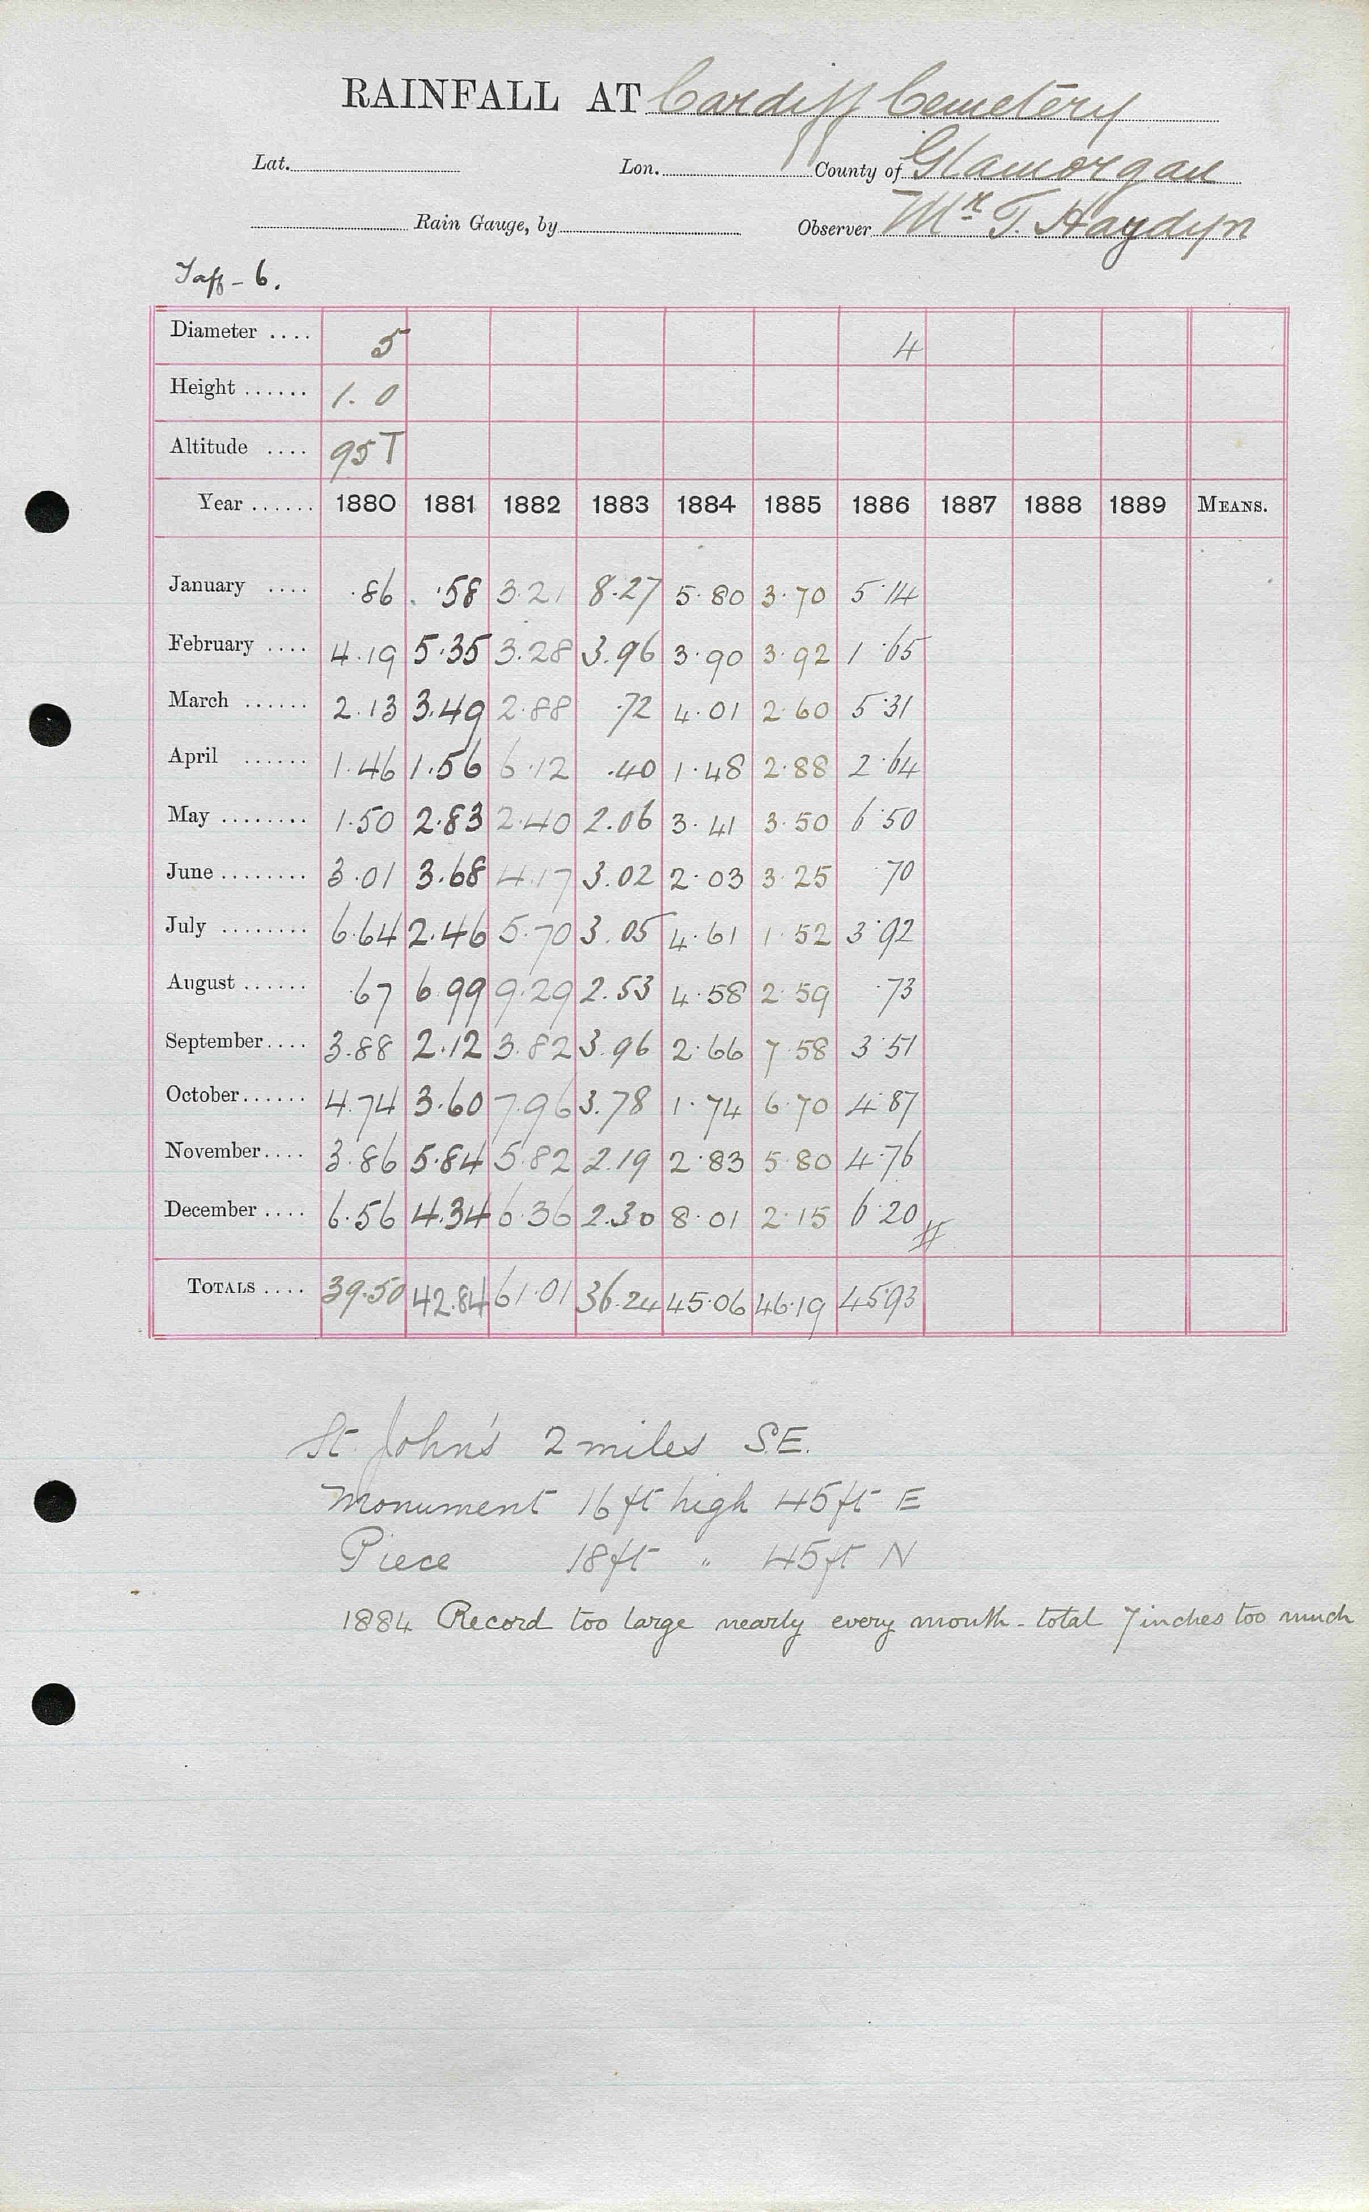 RAINFALL AT Cardiff Cemetery
Lat. Lon. County of Glamorgan
Rain Gauge, by Observer Mr T. Haydyn
Taff - 6.
Diameter .... 5 4
Height ...... 1. 0
Altitude .... 95 T
Year ...... 1880 1881 1882 1883 1884 1885 1886 1887 1888 1889 MEANS.
January .... .86 .58 3.21 8.27 5.80 3.70 5.14
February .... 4.19 5.35 3.28 3.96 3.90 3.92 1.65
March ...... 2.13 3.49 2.88 .72 4.01 2.60 5.31
April ...... 1.46 1.56 6.12 .40 1.48 2.88 2.64
May ........ 1.50 2.83 2.40 2.06 3.41 3.50 6.50
June ........ 3.01 3.68 4.17 3.02 2.03 3.25 .70
July ........ 6.64 2.46 5.70 3.05 4.61 1.52 3.92
August ...... .67 6.99 9.29 2.53 4.58 2.59 .73
September .... 3.88 2.12 3.82 3.96 2.66 7.58 3.51
October ...... 4.74 3.60 7.96 3.78 1.74 6.70 4.87
November .... 3.86 5.84 5.82 2.19 2.83 5.80 4.76
December .... 6.56 4.34 6.36 2.30 8.01 2.15 6.20
TOTALS .... 39.50 42.84 61.01 36.24 45.06 46.19 45.93
St. John's 2 miles S.E.
Monument 16 ft high 45 ft E
Piece 18 ft " 45 ft N
1884 Record too large nearly every month - total 7 inches too much